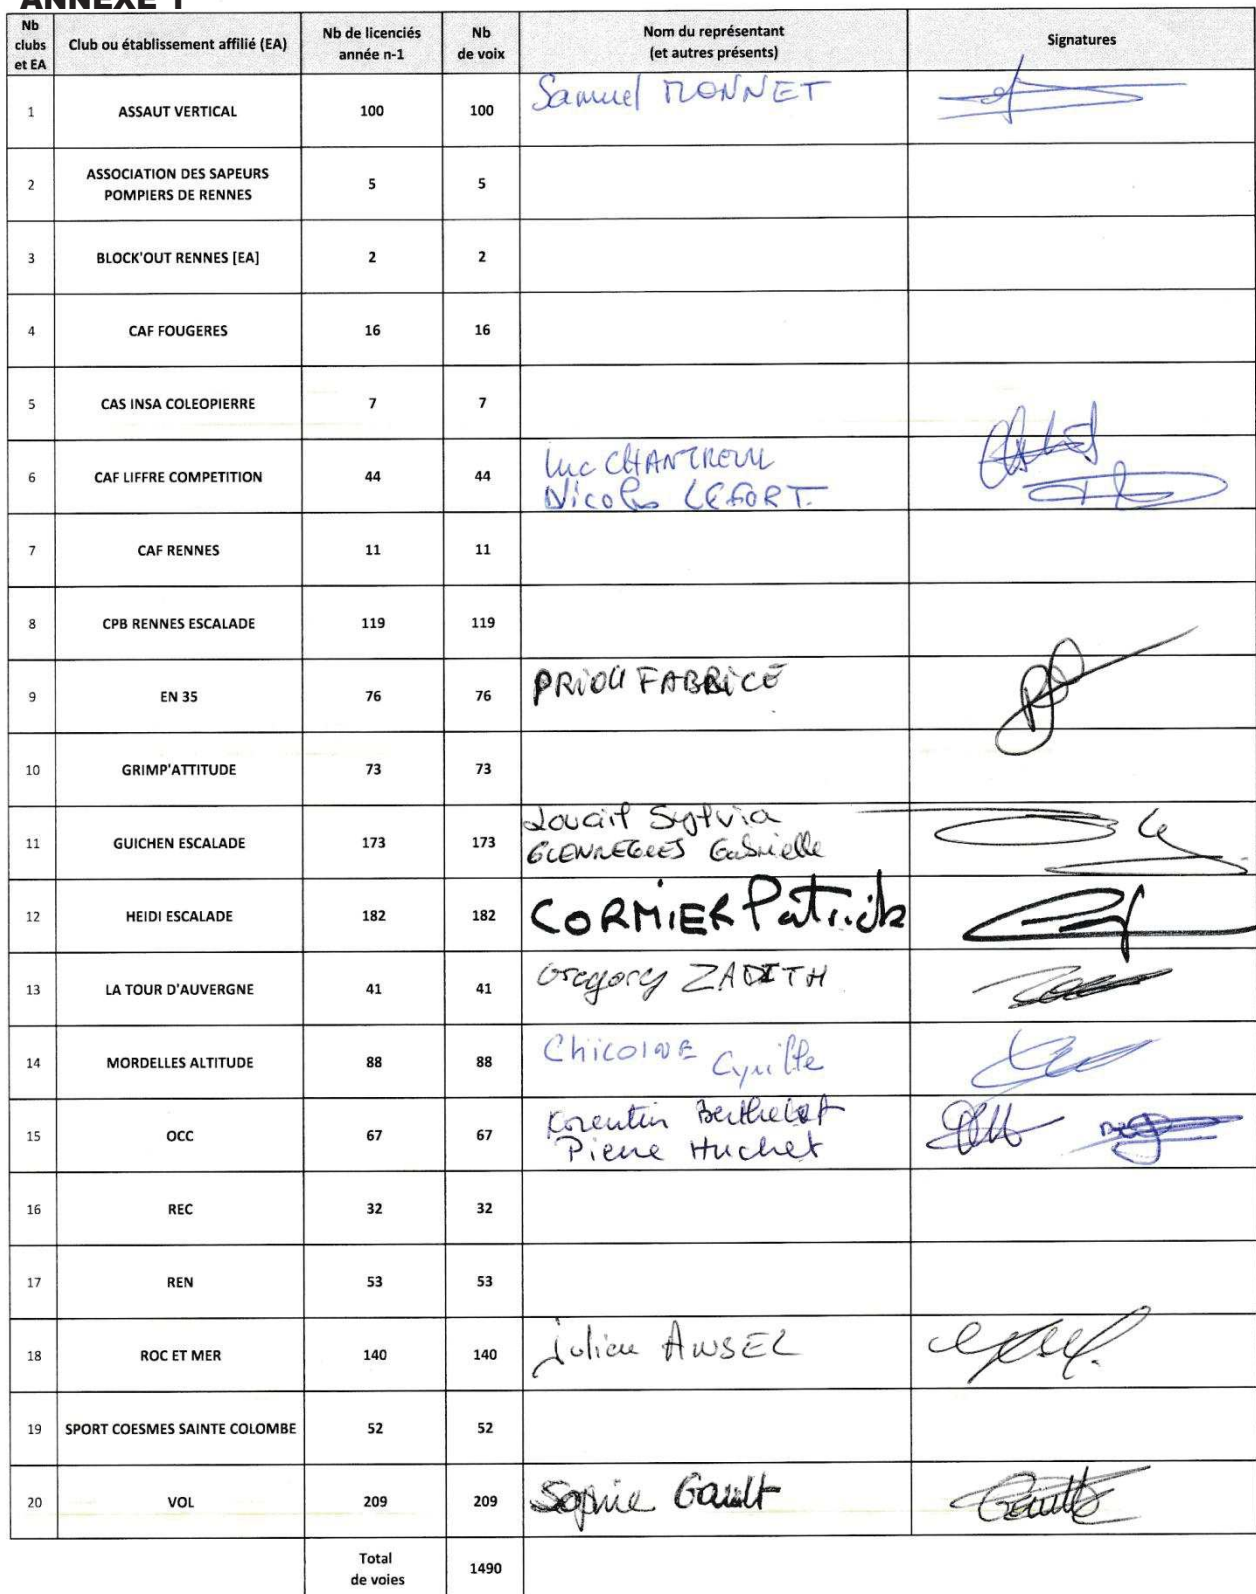 ANNEXE 1
Nb clubs et EA | Club ou établissement affilié (EA) | Nb de licenciés année n-1 | Nb de voix | Nom du représentant (et autres présents) | Signatures
1 | ASSAUT VERTICAL | 100 | 100 | Samuel MONNET
2 | ASSOCIATION DES SAPEURS POMPIERS DE RENNES | 5 | 5
3 | BLOCK'OUT RENNES [EA] | 2 | 2
4 | CAF FOUGERES | 16 | 16
5 | CAS INSA COLEOPIERRE | 7 | 7
6 | CAF LIFFRE COMPETITION | 44 | 44 | Luc CHANTREUL
Nicolas LEFORT
7 | CAF RENNES | 11 | 11
8 | CPB RENNES ESCALADE | 119 | 119
9 | EN 35 | 76 | 76 | PRIOU FABRICE
10 | GRIMP'ATTITUDE | 73 | 73
11 | GUICHEN ESCALADE | 173 | 173 | Sylvia
Gabrielle
12 | HEIDI ESCALADE | 182 | 182 | CORMIER Patrick
13 | LA TOUR D'AUVERGNE | 41 | 41 | Gregory ZADITH
14 | MORDELLES ALTITUDE | 88 | 88 | Chicoine Cyrille
15 | OCC | 67 | 67 | Korentin Berthelot
Pierre Huchet
16 | REC | 32 | 32
17 | REN | 53 | 53
18 | ROC ET MER | 140 | 140 | Julien ANSEL
19 | SPORT COESMES SAINTE COLOMBE | 52 | 52
20 | VOL | 209 | 209 | Sophie Gault
Total de voies | 1490